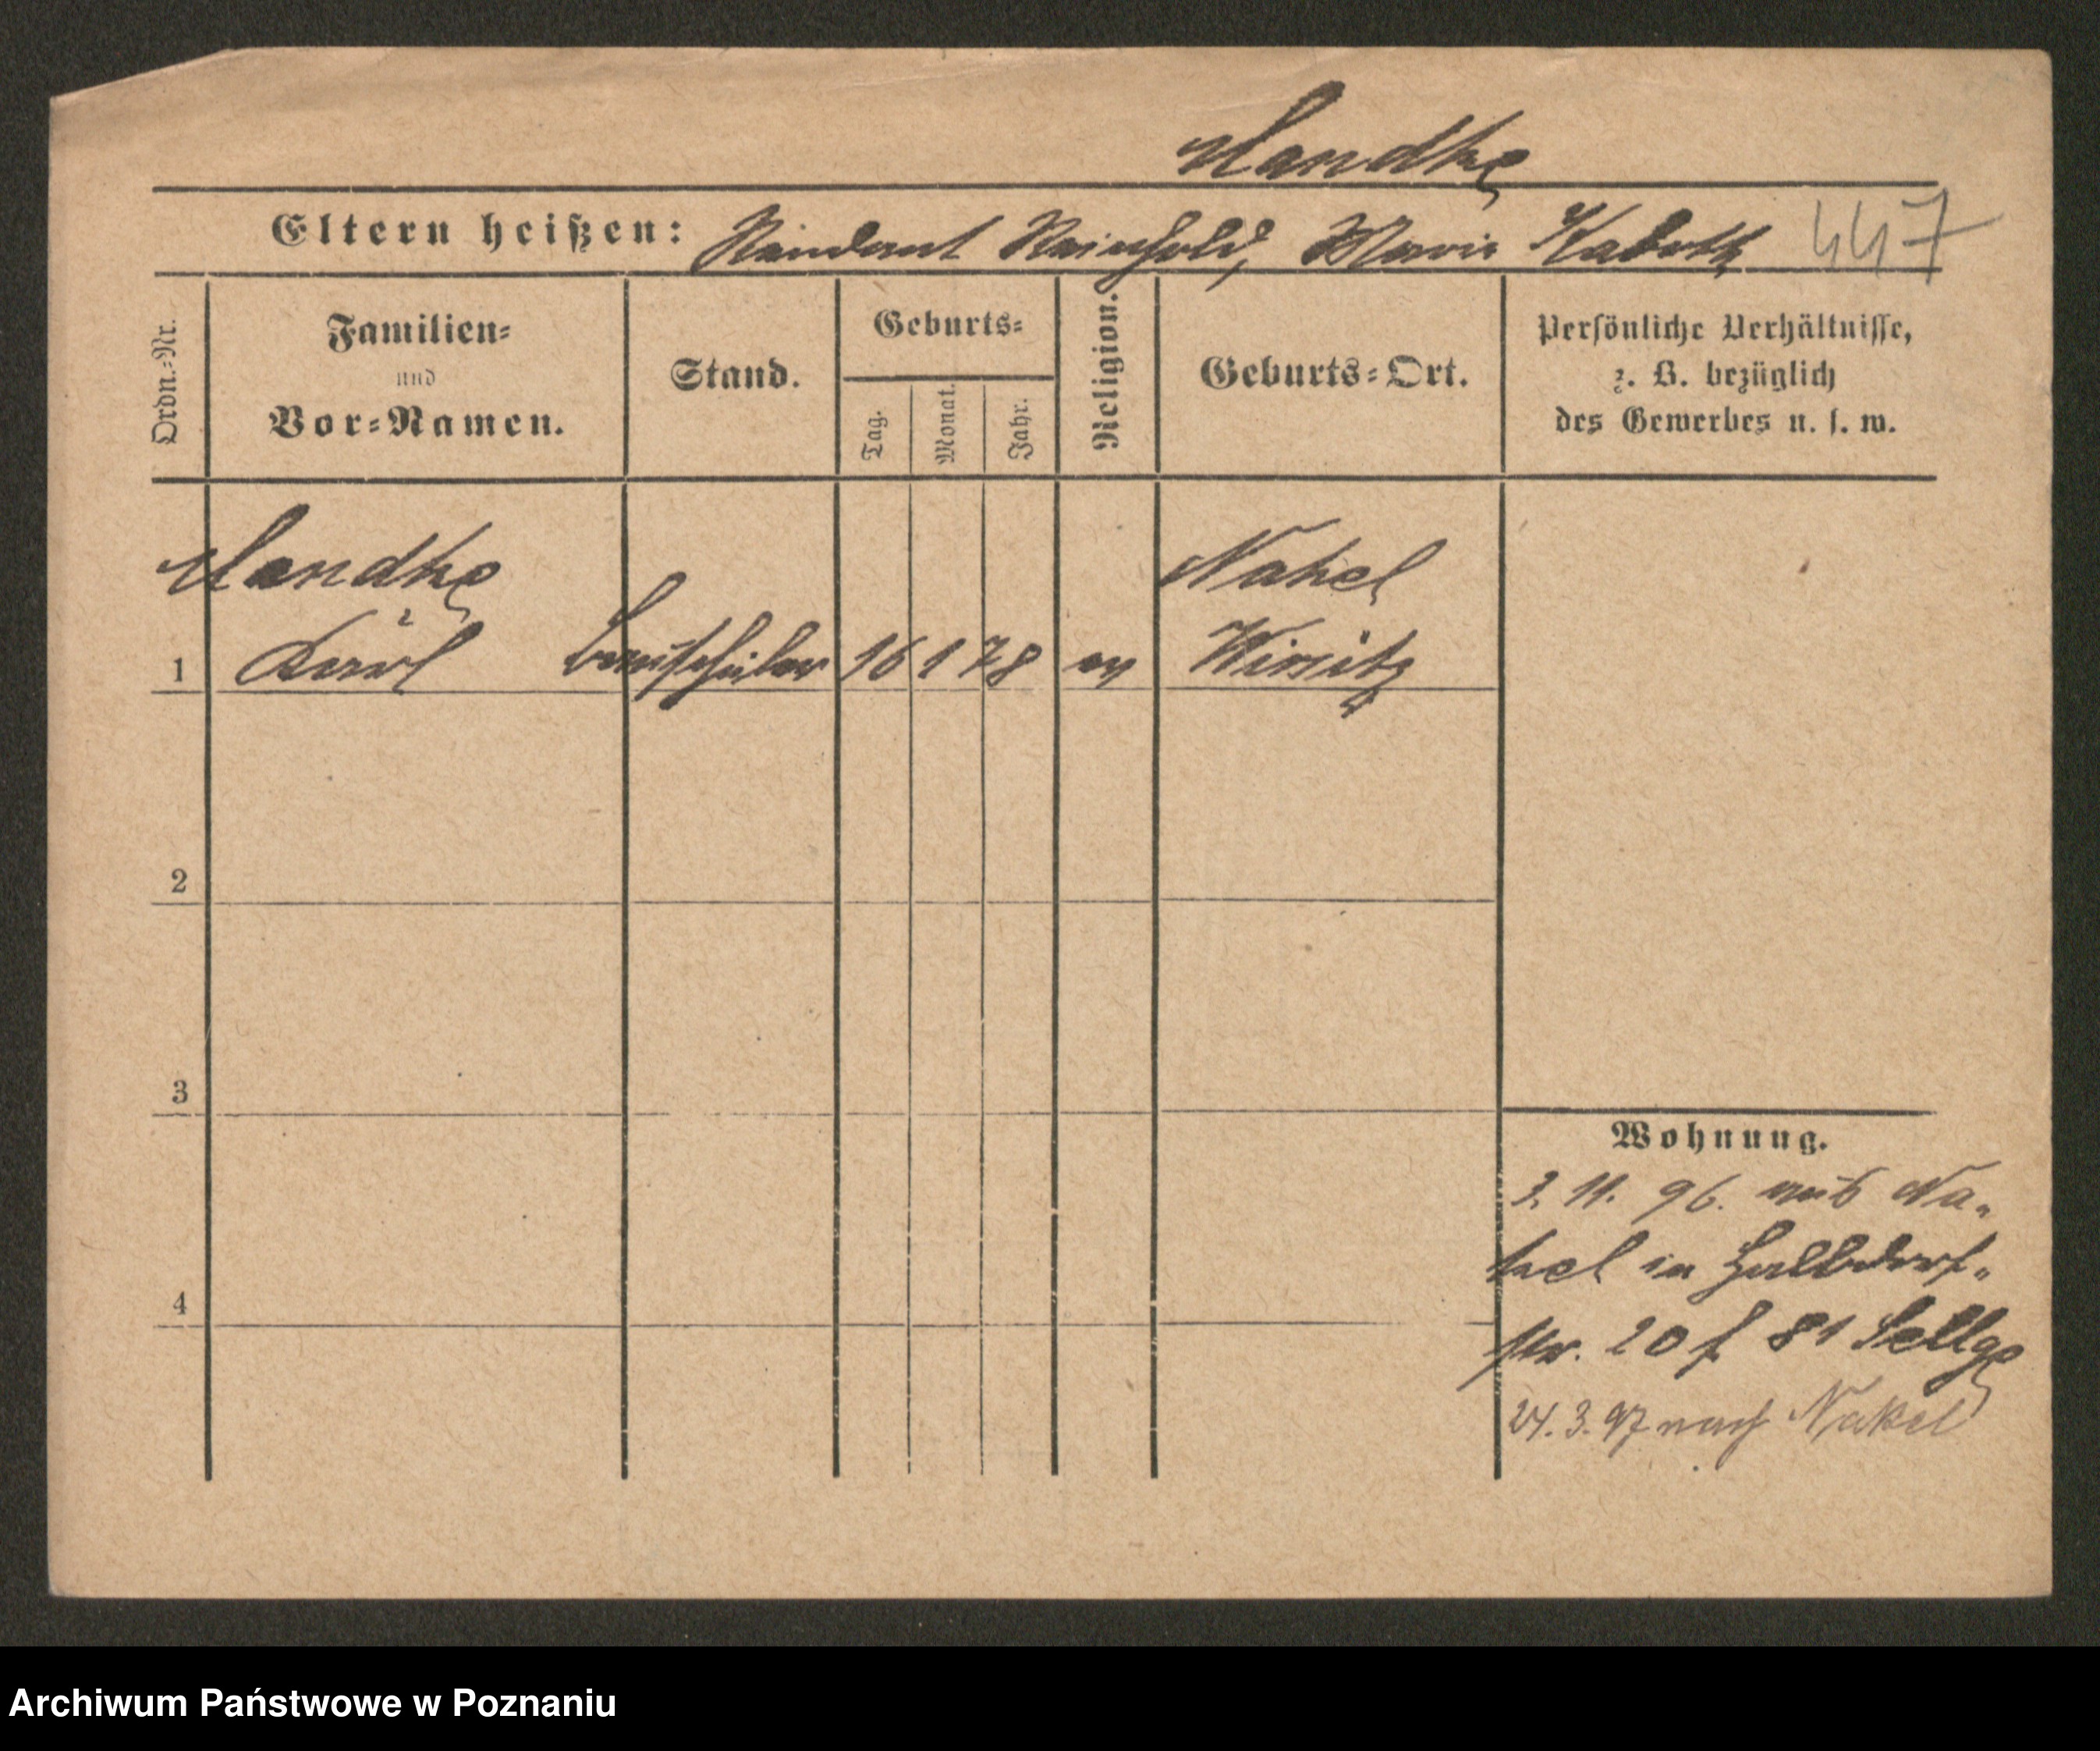 Mandke
Eltern heißen: Rendant Reinhold, Marie Kaboth 447
Ordn.=Nr.
Familien=
und
Vor=Namen.
Stand.
Geburts=
Tag.
Monat.
Jahr.
Religion.
Geburts=Ort.
Persönliche Verhältnisse,
z. B. bezüglich
des Gewerbes u. s. w.
Nakel
1 Karl Bauschüler 16 1 78 ev Wirsitz
2
3
4
Wohnung.
3. 11. 96. aus Na„
kel in Halbdorf„
str. 20 f. 81 Sellge
24. 3. 97 nach Nakel
Archiwum Państwowe w Poznaniu